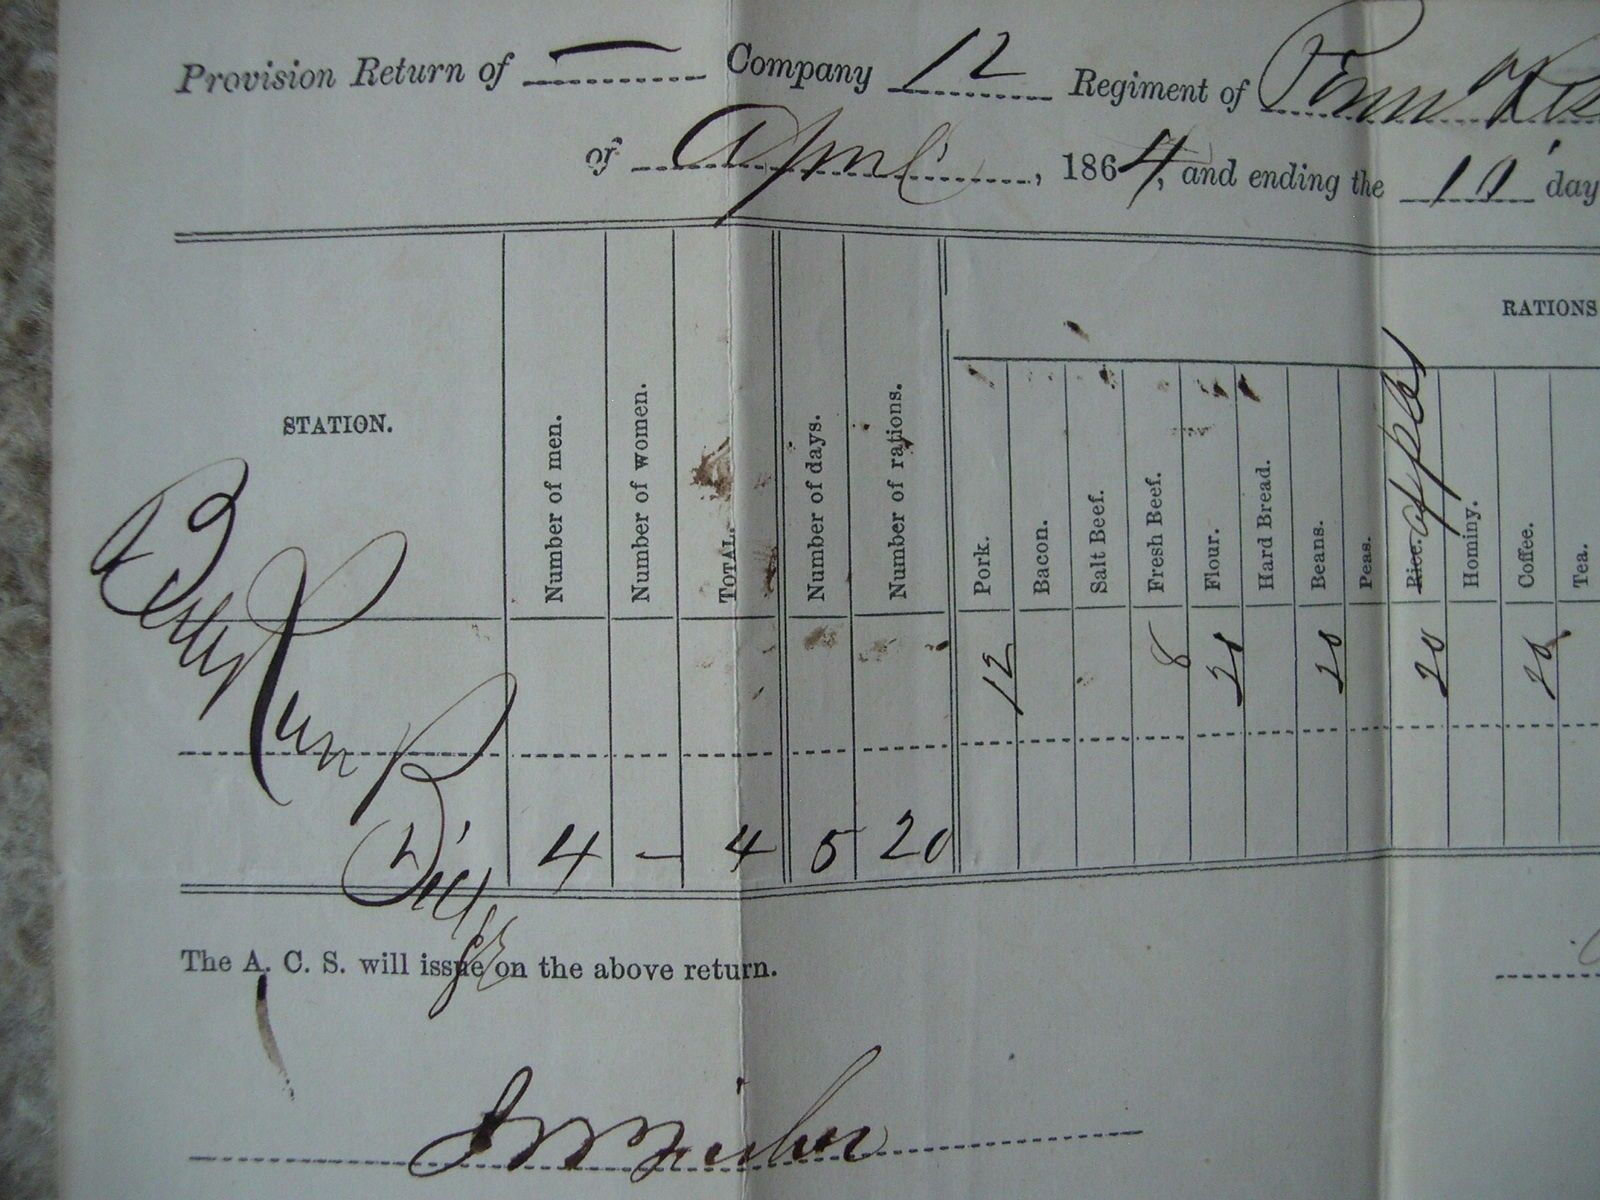 Provision Return of — Company 12 Regiment of Penn Res
of April, 1864, and ending the 10 day
RATIONS
STATION.
Number of men.
Number of women.
TOTAL.
Number of days.
Number of rations.
Pork.
Bacon.
Salt Beef.
Fresh Beef.
Flour.
Hard Bread.
Beans.
Peas.
Rice. apples
Hominy.
Coffee.
Tea.
12 8 20 20 20 20
Run
4 — 4 5 20
The A. C. S. will issue on the above return.
Fisher